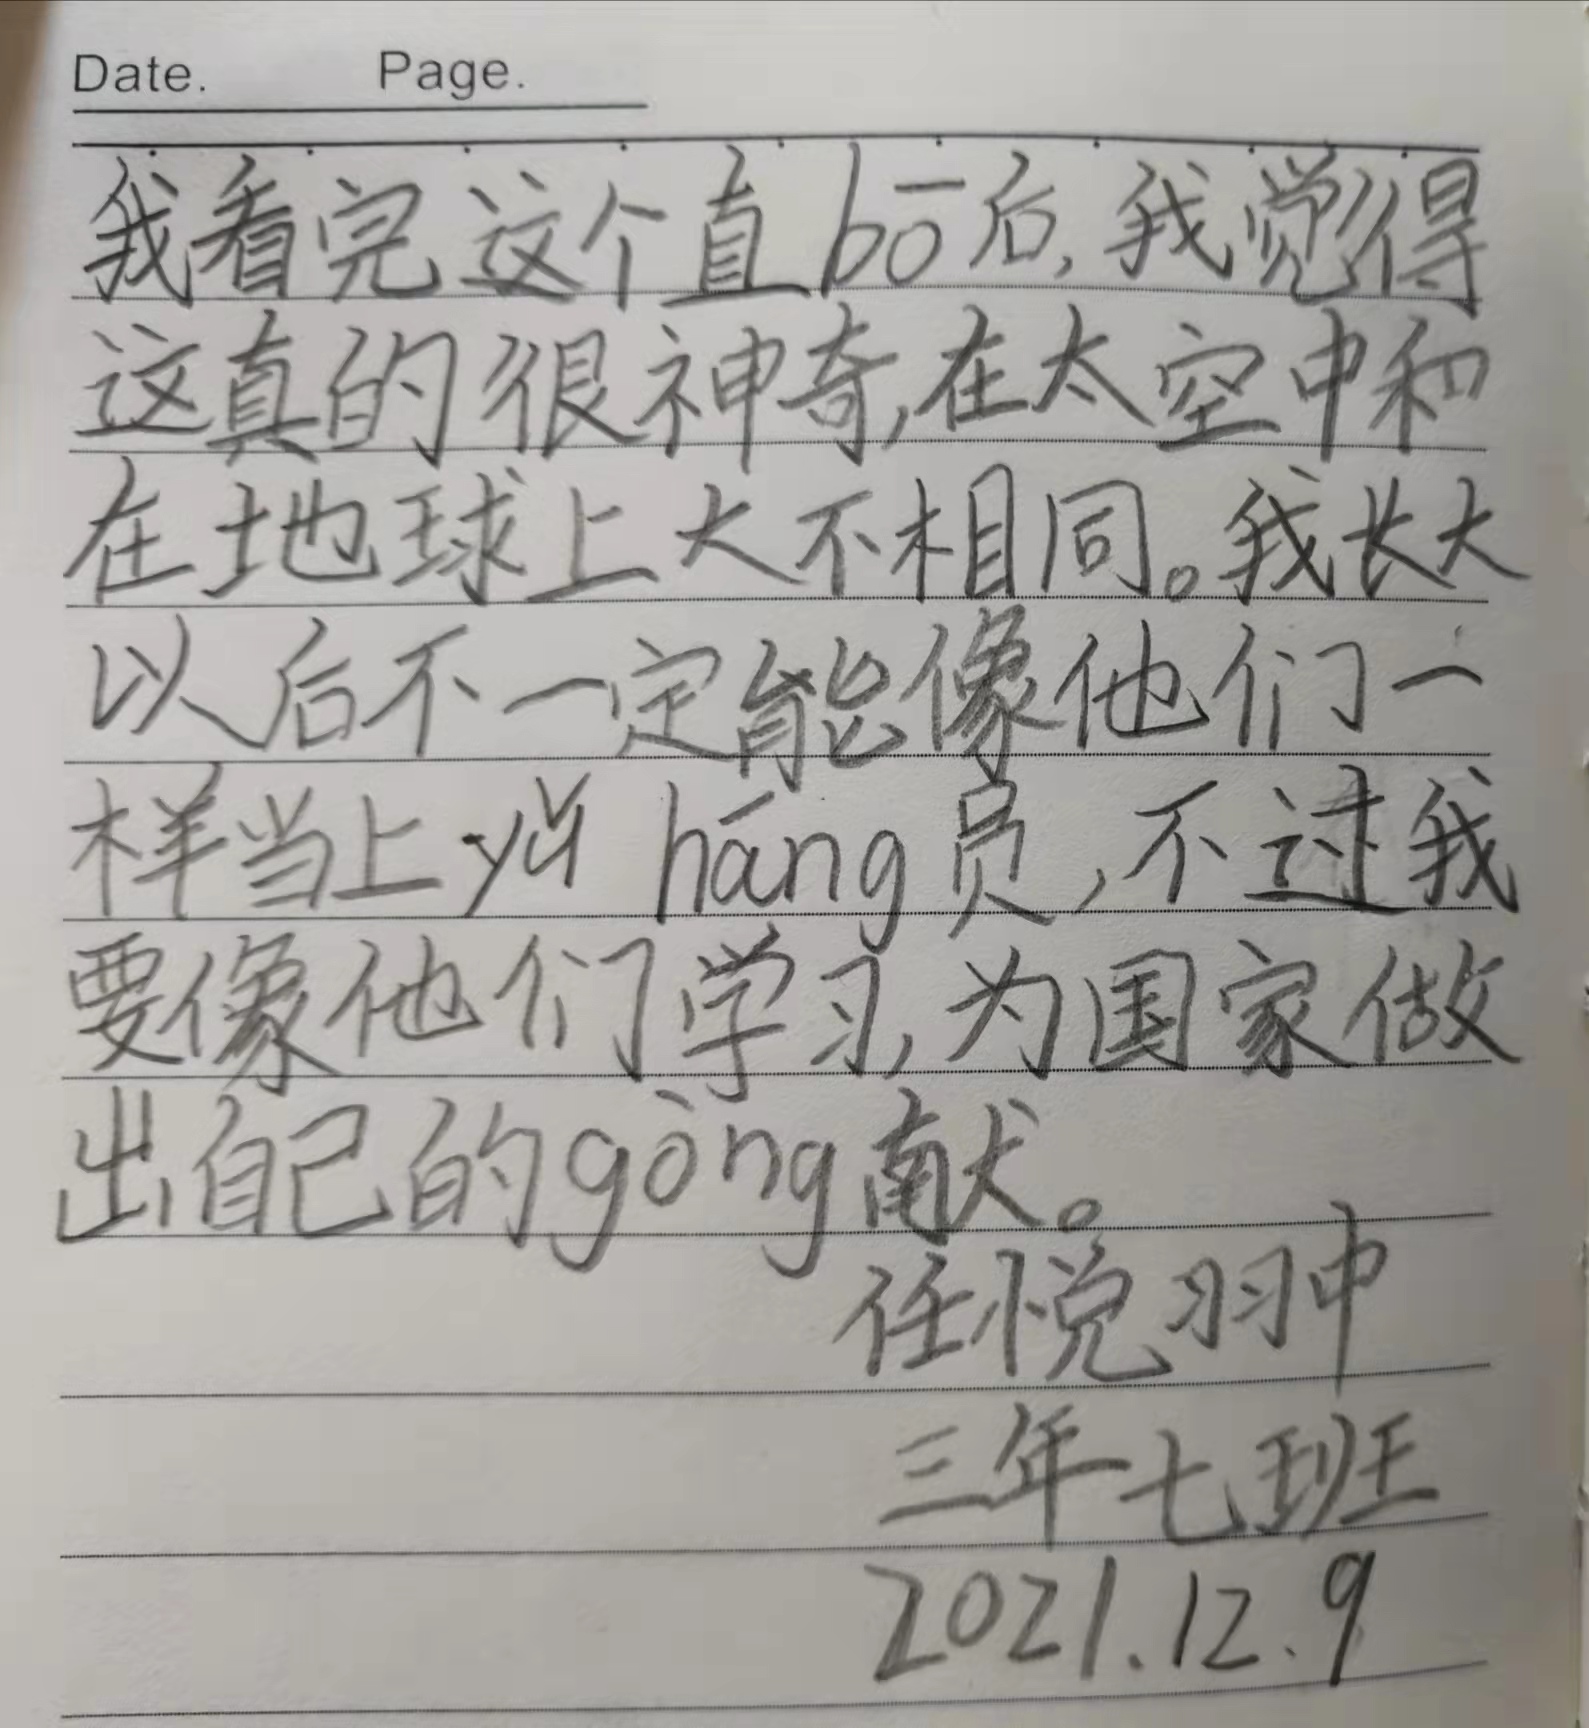 Date. Page.
我看完这个直bō后,我觉得
这真的很神奇,在太空中和
在地球上大不相同。我长大
以后不一定能像他们一
样当上yǔ hāng员,不过我
要像他们学习,为国家做
出自己的gòng献。
任悦翀
三年七班
2021.12.9